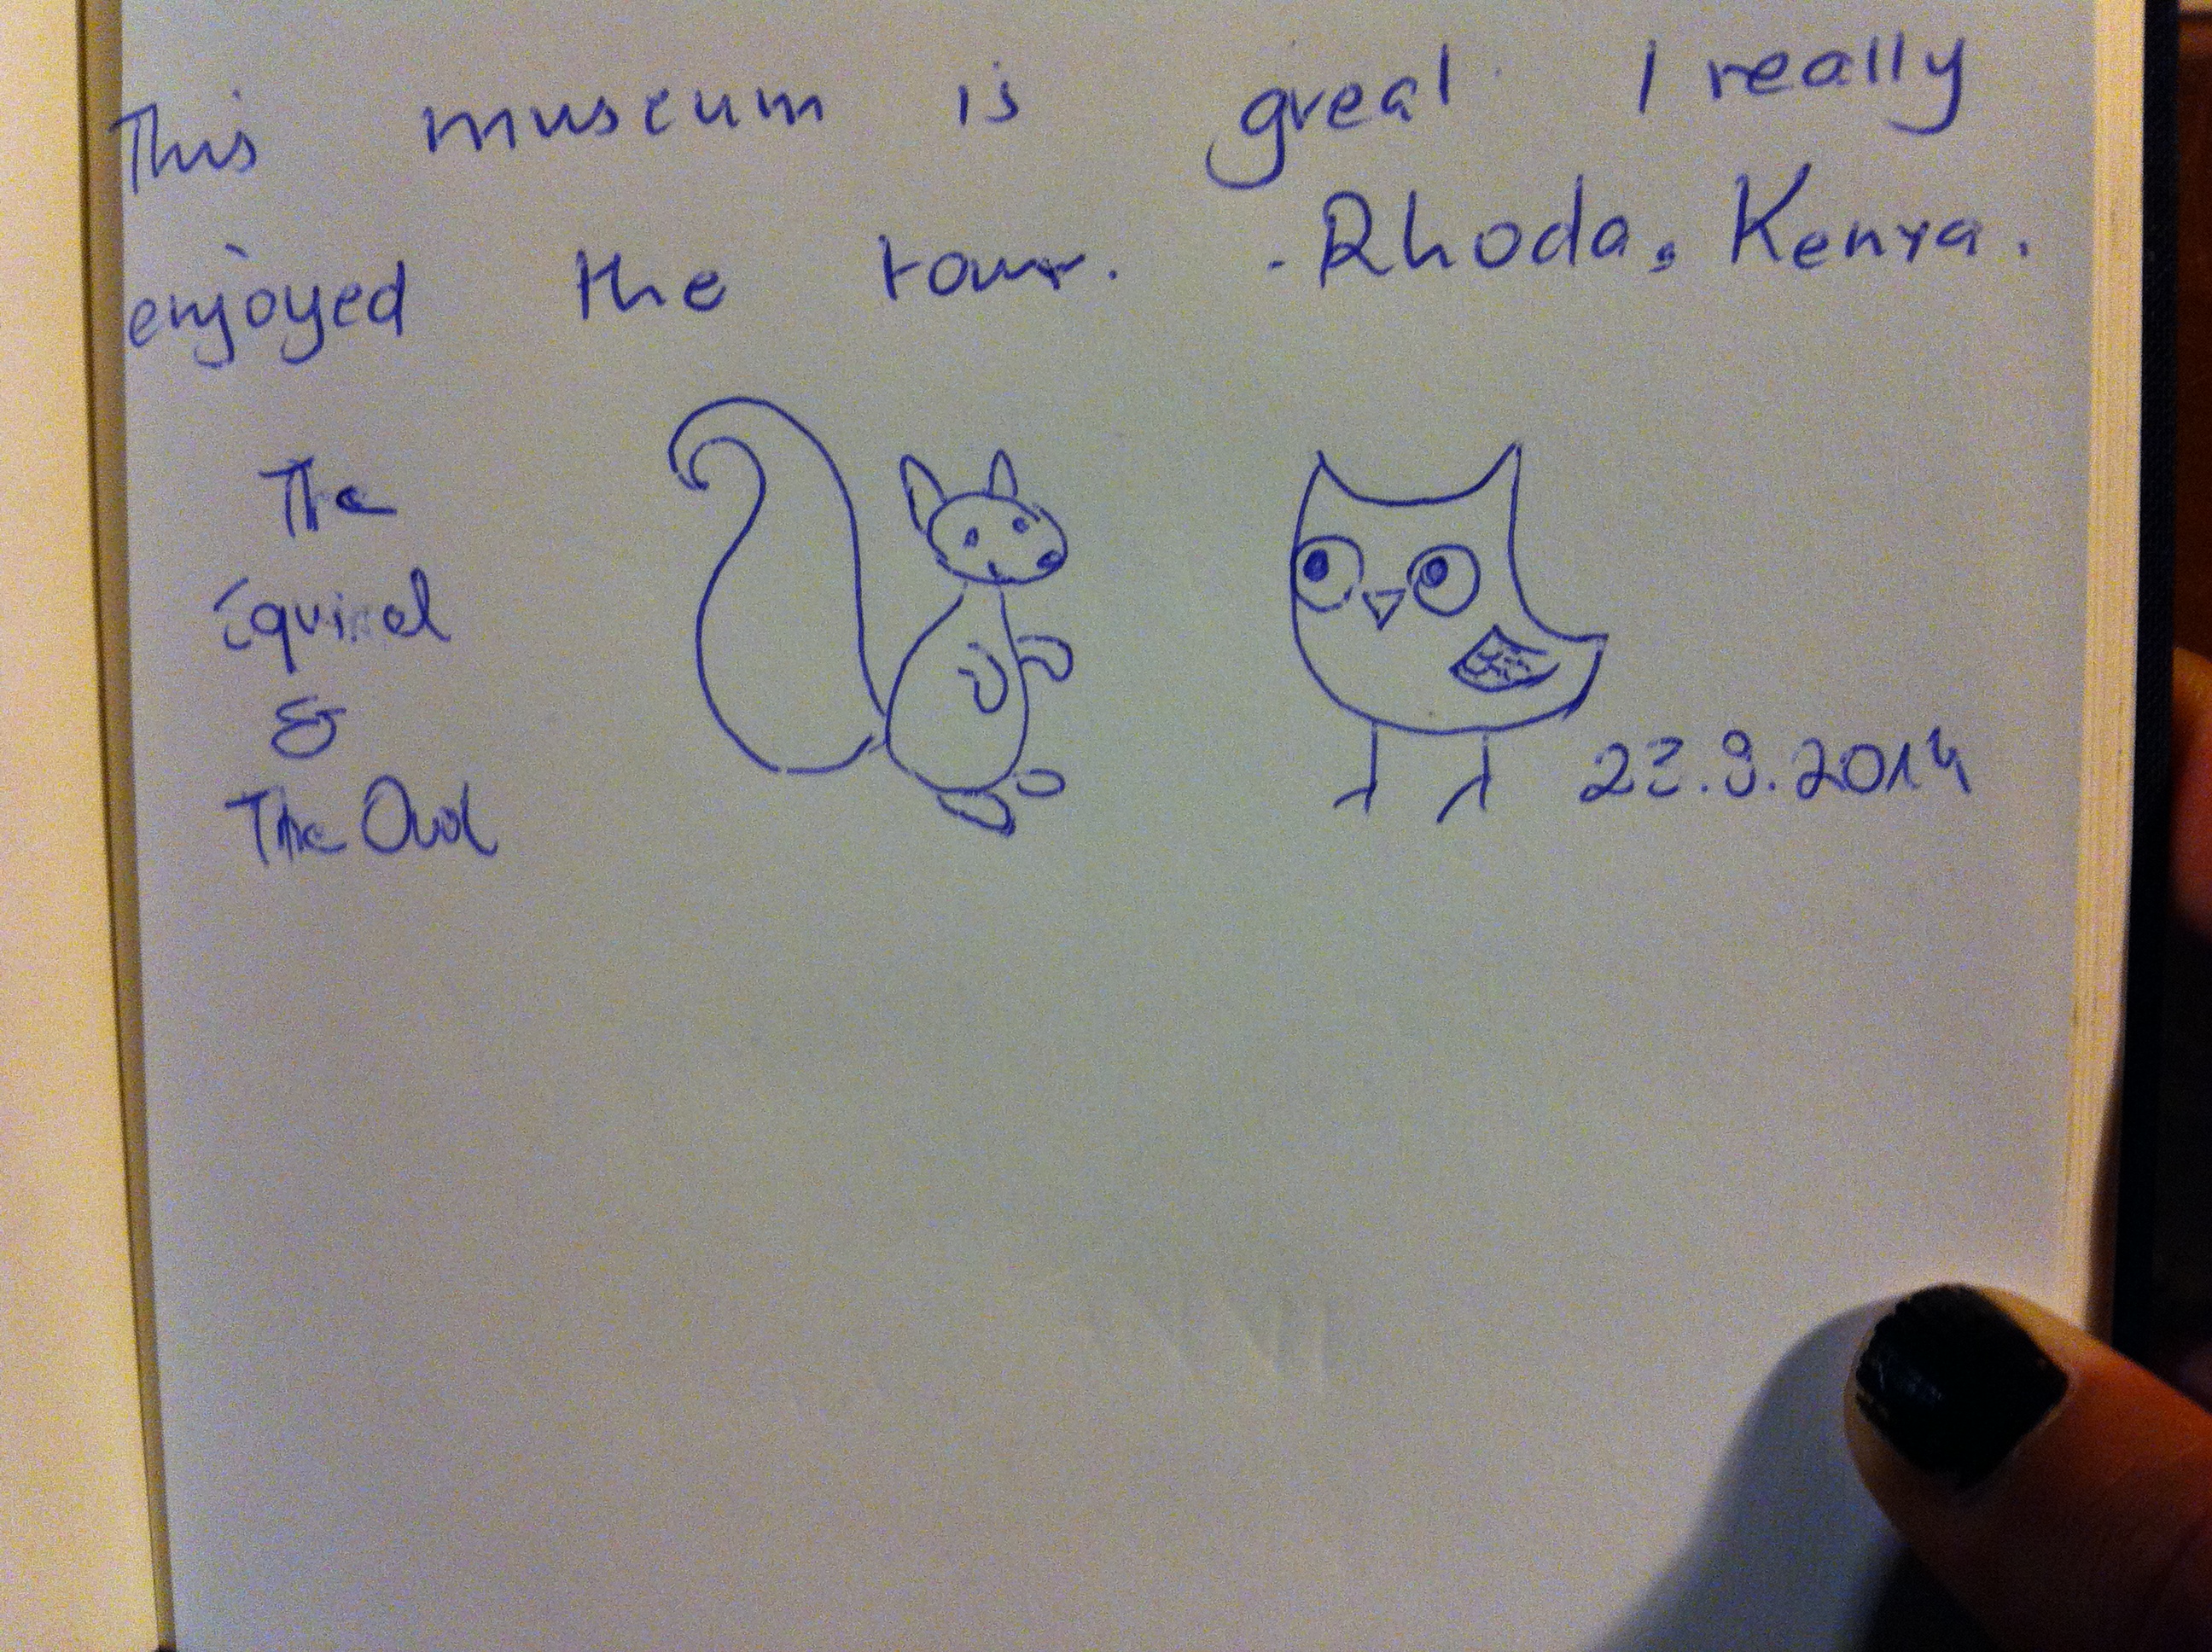 This museum is great. I really
enjoyed the tour. - Rhoda, Kenya.
The
&
The Owl
23.9.2014